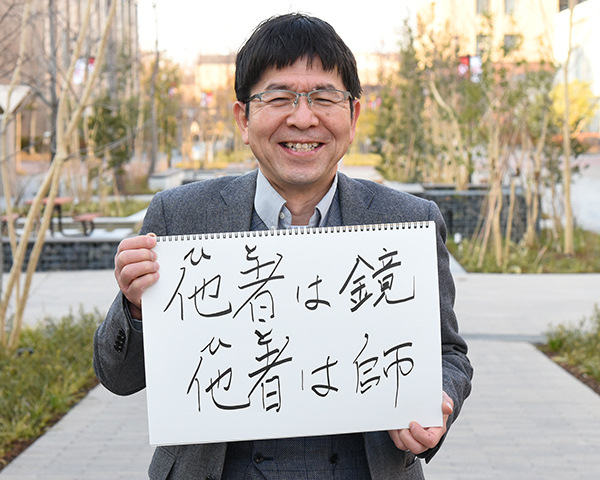 他者は鏡
他者は師